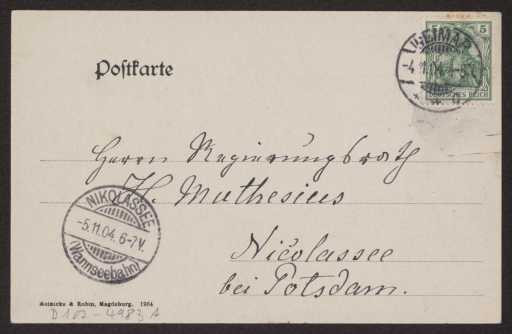 Postkarte
WEIMAR
-4.11.04. 4-5
5
DEUTSCHES REICH
Herrn Regierungsrath
H. Muthesius
Nicolassee
bei Potsdam.
NIKOLASSEE
-5.11.04. 6-7V.
(Wannseebahn)
Meinicke & Rubin, Magdeburg. 1904
D102-4983 A